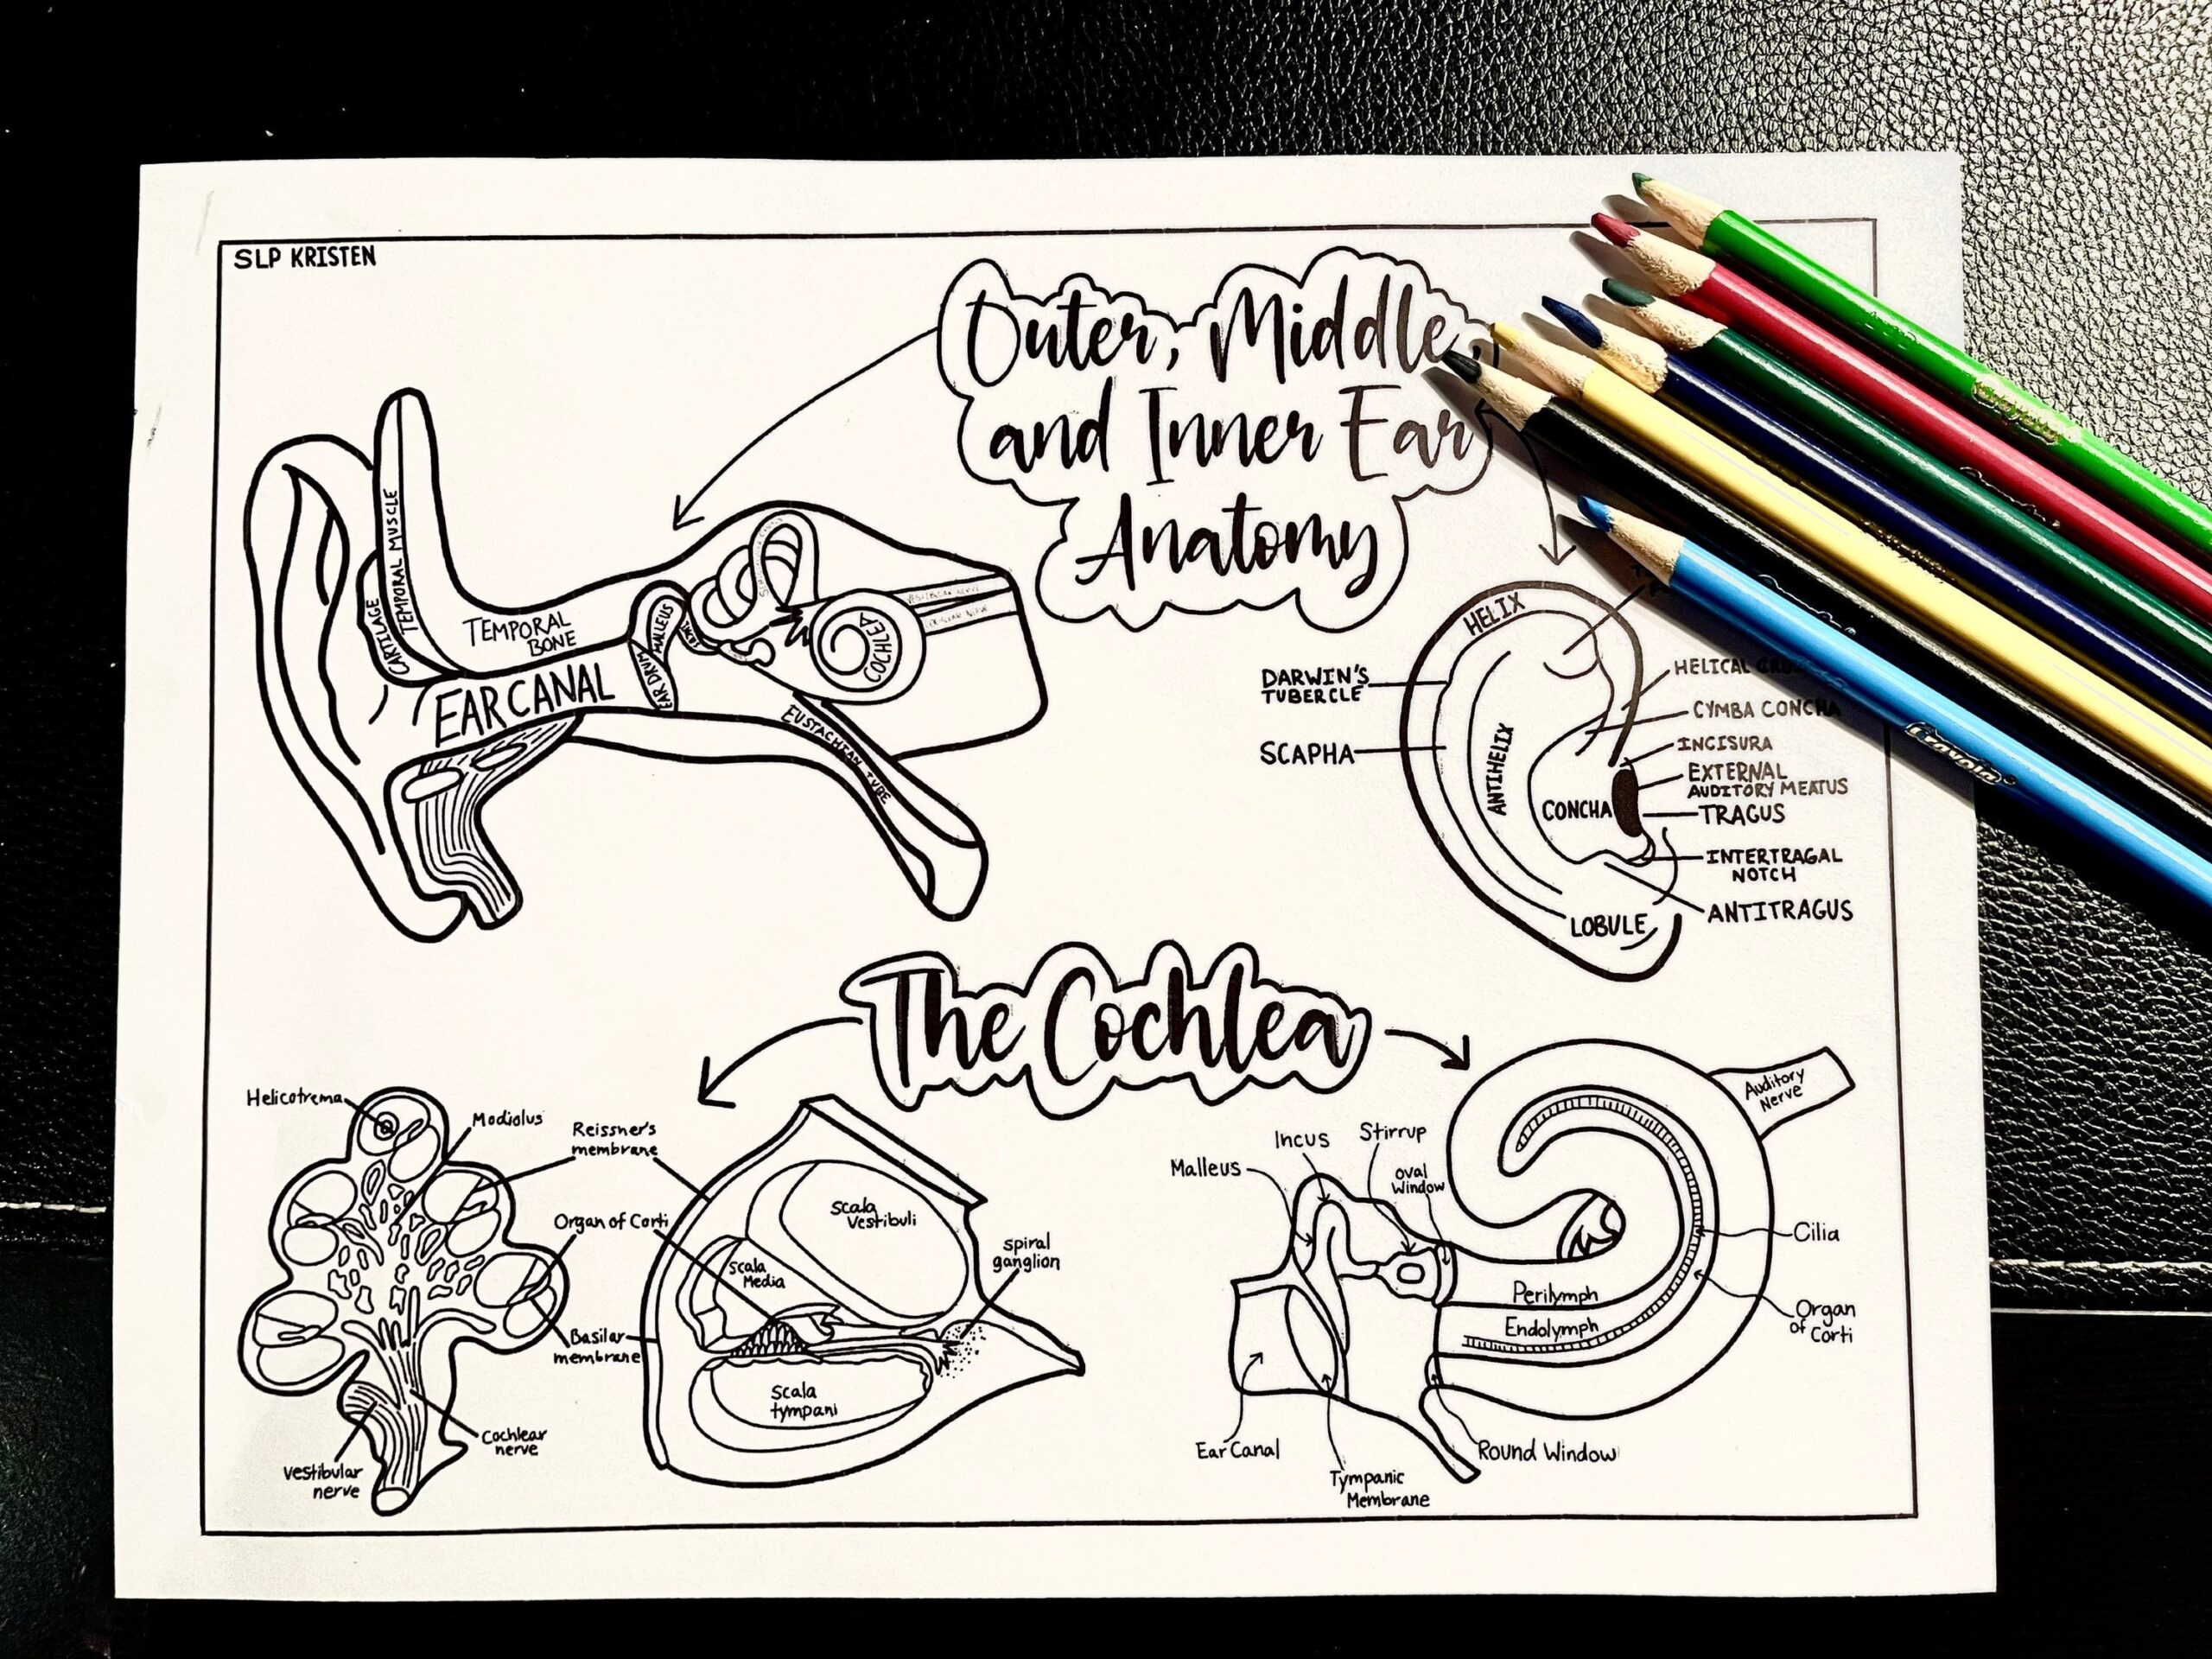 SLP KRISTEN
Outer, Middle,
and Inner Ear
Anatomy
CARTILAGE
TEMPORAL MUSCLE
TEMPORAL
BONE
EAR CANAL
EAR DRUM
MALLEUS
COCHLEA
VESTIBULAR NERVE
COCHLEAR NERVE
EUSTACHIAN TUBE
HELIX
DARWIN'S
TUBERCLE
SCAPHA
ANTIHELIX
CONCHA
LOBULE
HELICAL
CYMBA CONCHA
INCISURA
EXTERNAL
AUDITORY MEATUS
TRAGUS
INTERTRAGAL
NOTCH
ANTITRAGUS
Crayola
The Cochlea
Helicotrema
Modiolus
Reissner's
membrane
Organ of Corti
Basilar
membrane
Cochlear
nerve
Vestibular
nerve
Scala
Vestibuli
Scala
Media
Scala
tympani
spiral
ganglion
Malleus
Incus
Stirrup
oval
Window
Auditory
Nerve
Cilia
Perilymph
Endolymph
Organ
of Corti
Ear Canal
Tympanic
Membrane
Round Window